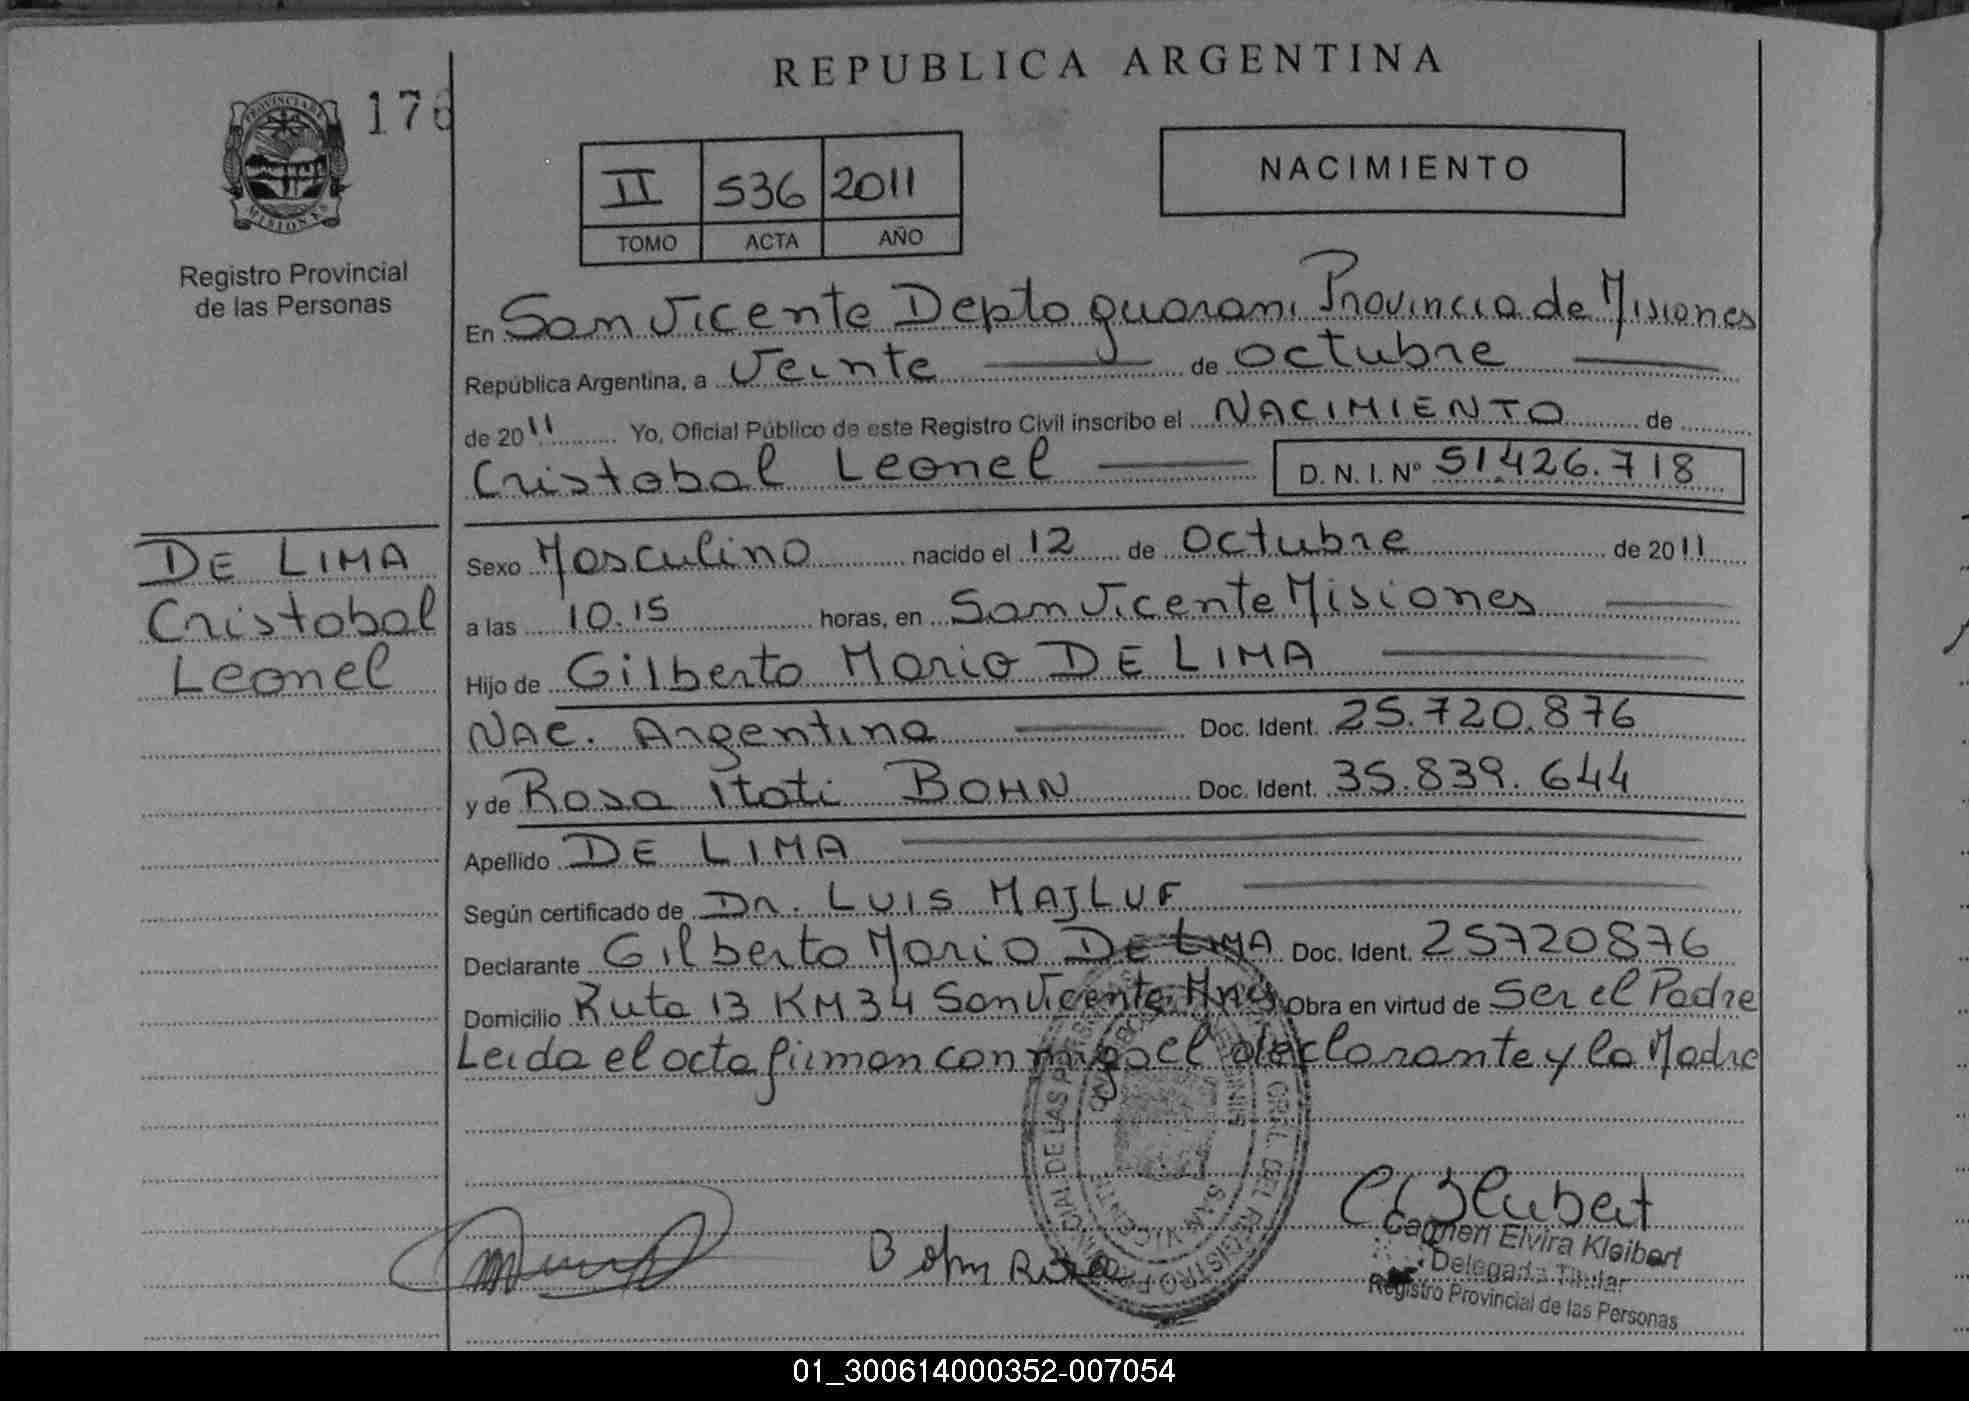 REPUBLICA ARGENTINA
PROVINCIA DE
MISIONES
176
Registro Provincial
de las Personas
II 536 2011
TOMO ACTA AÑO
NACIMIENTO
En San Vicente Depto guarani Provincia de Misiones
República Argentina, a Veinte de octubre
de 2011 Yo, Oficial Público de este Registro Civil inscribo el NACIMIENTO de
Cristobal Leonel D.N.I.Nº 51.426.718
DE LIMA
Cristobal
Leonel
Sexo Masculino nacido el 12 de Octubre de 2011
a las 10.15 horas, en San Vicente Misiones
Hijo de Gilberto Mario DE LIMA
NAC. Argentina Doc. Ident. 25.720.876
y de Rosa itati BOHN Doc. Ident. 35.839.644
Apellido DE LIMA
Según certificado de Dr. LUIS MAJLUF
Declarante Gilberto Mario DE LIMA Doc. Ident. 25720876
Domicilio Ruta 13 KM 34 San Vicente Mnes Obra en virtud de Ser el Padre
Leida el acta firman conmigo el declarante y la Madre
Bohn Rosa
Carmen Elvira Kleibert
Delegada Titular
Registro Provincial de las Personas
01_300614000352-007054